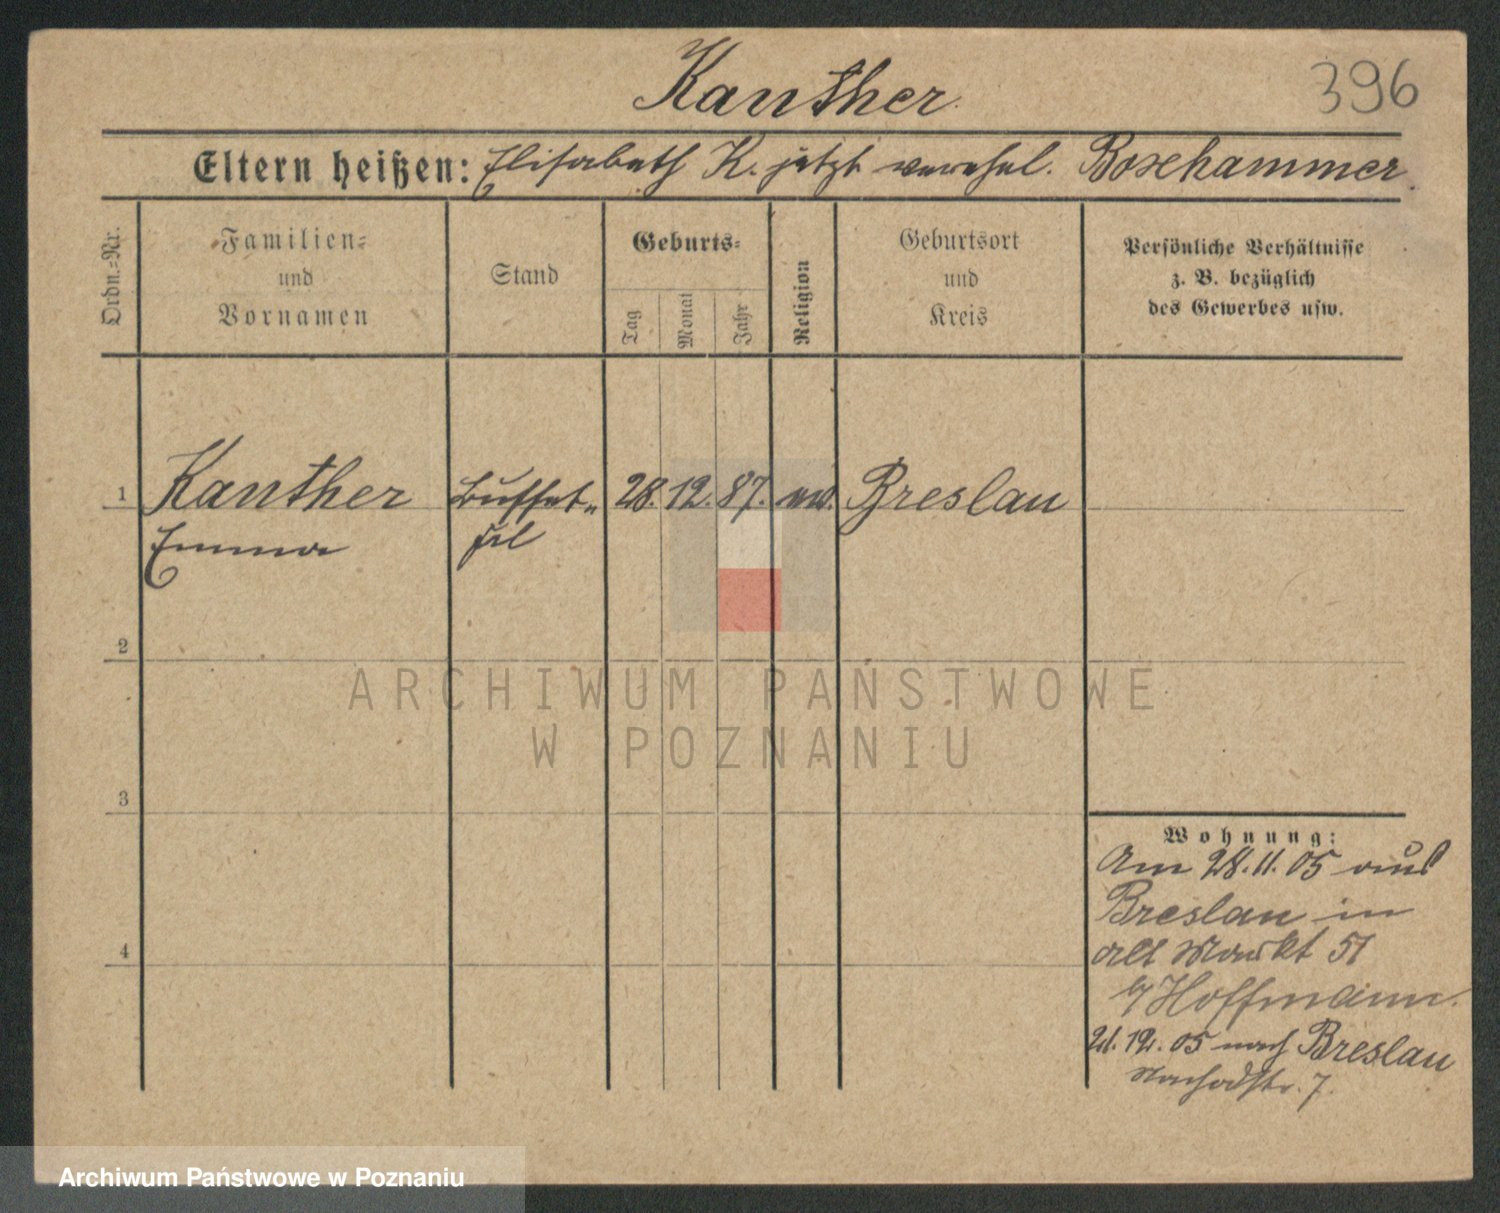 Kanther
396
Eltern heißen: Elisabeth K. jetzt verehel. Bosehammer.
Ordn.=Nr.
Familien=
und
Vornamen
Stand
Geburts=
Tag
Monat
Jahr
Religion
Geburtsort
und
Kreis
Persönliche Verhältnisse
z. B. bezüglich
des Gewerbes usw.
1 Kanther Buffet- 28. 12. 87. ev. Breslau
Emma frl
2
3
4
Wohnung:
Am 28.11.05 aus
Breslau in
alt Markt 51
b/ Hoffmann.
21.12.05 nach Breslau
7.
ARCHIWUM PAŃSTWOWE
W POZNANIU
Archiwum Państwowe w Poznaniu